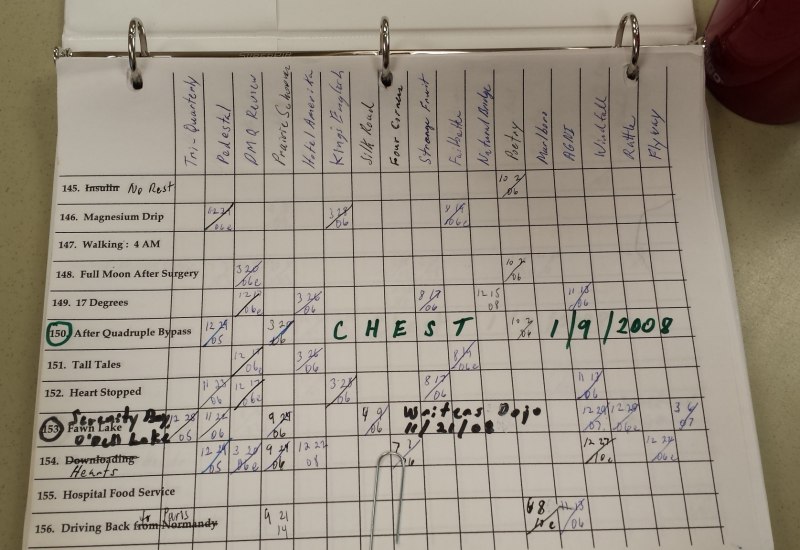 Tri-Quarterly Pedestal DMQ Review Prairie Schooner Hotel Amerika Kings English Silk Road Four Corners Strange Fruit Natural Bridge Poetry Marlboro AGNI Windfall Rattle Flyway
145. Insulin No Rest 10 2 06
146. Magnesium Drip 12 29 06c 3 28 06 8 19 06c
147. Walking : 4 AM
148. Full Moon After Surgery 3 20 06c 10 2 06
149. 17 Degrees 12 17 06c 3 26 06 8 17 06 12 15 08 11 13 06
150. After Quadruple Bypass 12 29 05 3 20 06 CHEST 10 2 06 1/9/2008
151. Tall Tales 12 17 06c 3 26 06 8 19 06c
152. Heart Stopped 11 23 06 12 17 06c 3 28 06 8 17 06 11 13 06
153. Fawn Lake Serenity Bay, O'Dell Lake 12 28 05 11 22 06 9 24 06 4 9 06 Writers Dojo 11/21/08 12 29 07 12 28 06c 3 6 07
154. Downloading Hearts 12 29 05 3 20 06c 9 24 06 12 22 08 12 27 12 22 06c
155. Hospital Food Service
156. Driving Back from Normandy to Paris 9 21 14 11 13 06